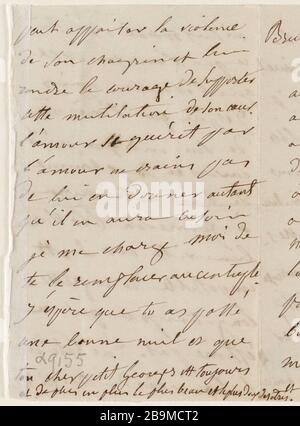 peut apporter la violence
de son chagrin et lui
rendre le courage de supporter
cette mutilation de son cœur
l'amour se guérit par
l'amour ne crains pas
de lui en donner autant
qu'il en aura besoin
je me charge moi de
te le remplacer au centuple
J'espère que tu as passé
une bonne nuit et que
ton cher petit Georges est toujours
et de plus en plus le plus beau et le plus
29155
alamy
Image ID: 2BRMCT2
www.alamy.com